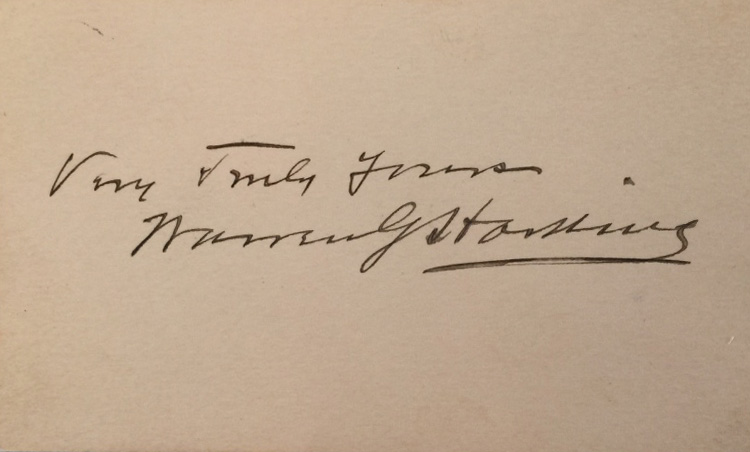 Very Truly Yours
Warren G Harding